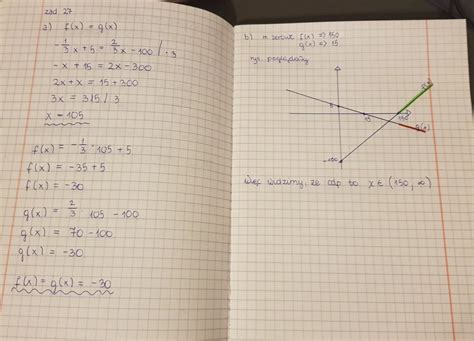 zad. 27
a) f(x) = g(x)
-1/3 x + 5 = 2/3 x - 100 / · 3
-x + 15 = 2x - 300
2x + x = 15 + 300
3x = 315 / 3
x = 105
f(x) = -1/3 · 105 + 5
f(x) = -35 + 5
f(x) = -30
g(x) = 2/3 105 - 100
g(x) = 70 - 100
g(x) = -30
f(x) = g(x) = -30
b) m. zerowe f(x) => 150
g(x) => 15
rys. poglądowy
5
15
150
-100
g(x)
więc widzimy, że odp to x ∈ (150, ∞)